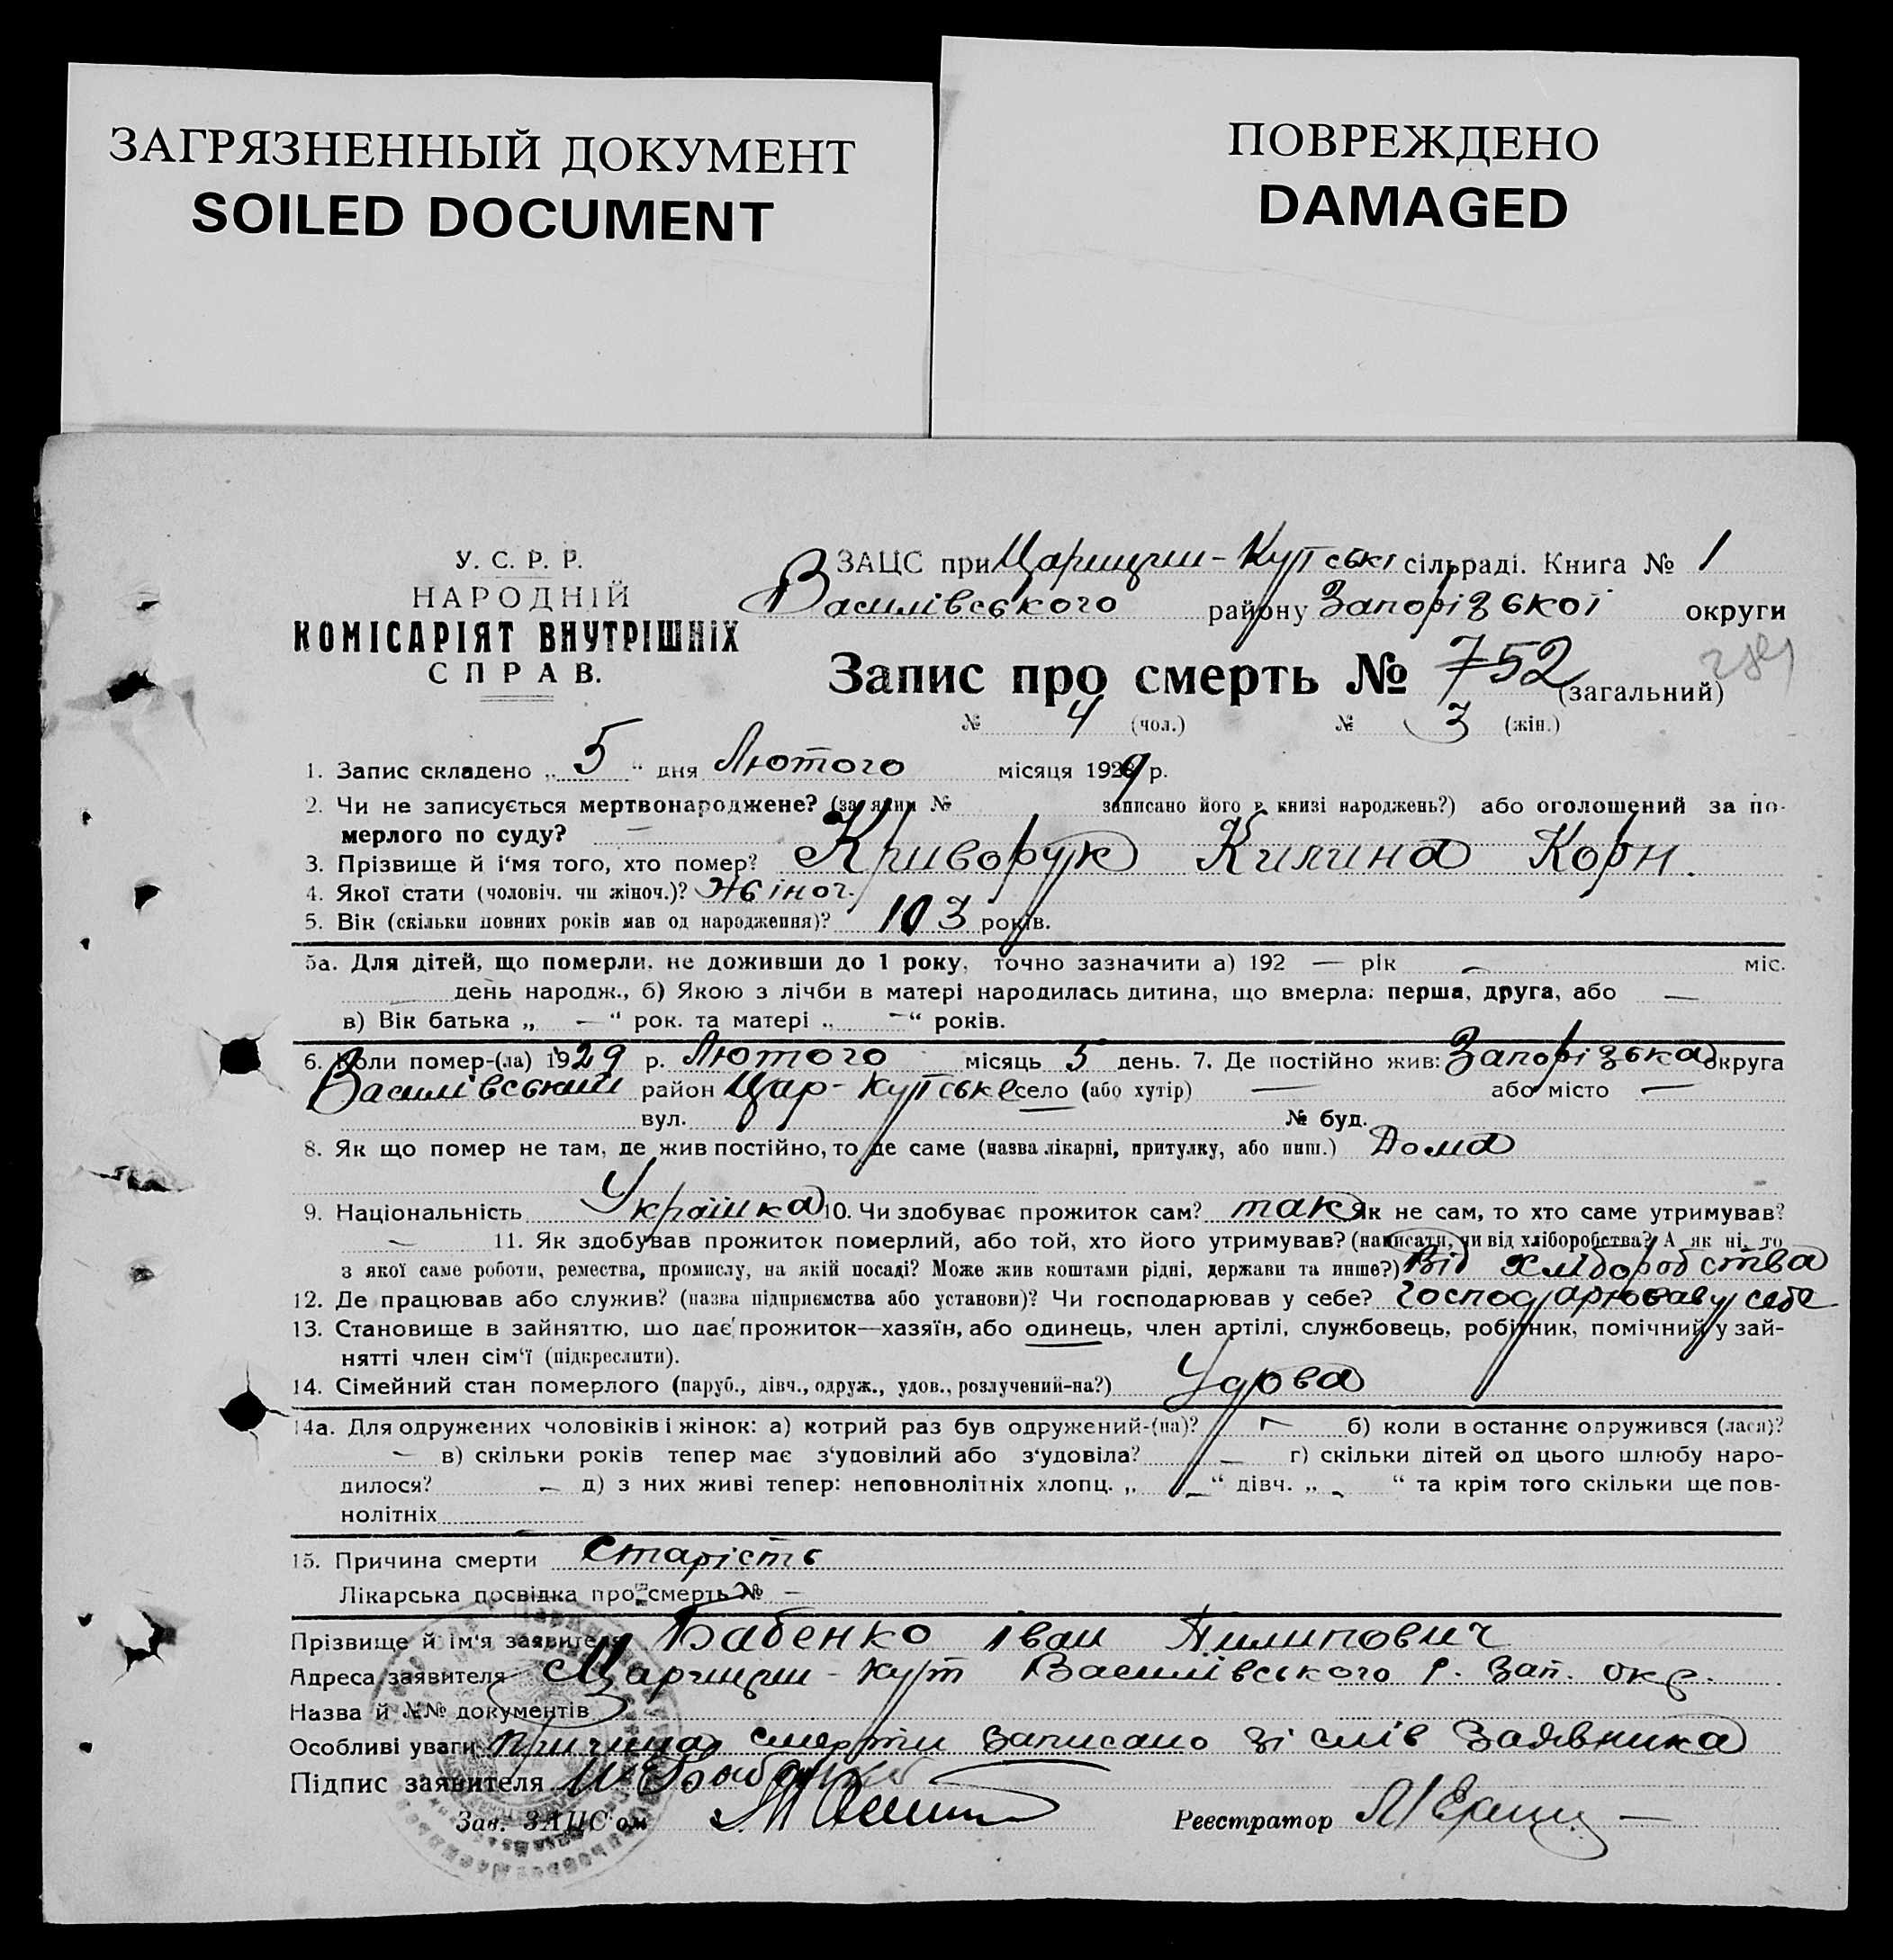 ЗАГРЯЗНЕННЫЙ ДОКУМЕНТ
SOILED DOCUMENT
ПОВРЕЖДЕНО
DAMAGED
У. С. Р. Р.
НАРОДНІЙ
КОМІСАРІЯТ ВНУТРІШНІХ
СПРАВ.
ЗАЦС при Царицин-Кутські сільраді. Книга № 1
Василівського району Запорізької округи
Запис про смерть № 752 (загальний)
№ 4 (чол.) № 3 (жін.)
1. Запис складено „ 5 “ дня Лютого місяця 1929 р.
2. Чи не записується мертвонароджене? (за яким № записано його в книзі народжень?) або оголошений за по-
мерлого по суду? —
3. Прізвище й і‘мя того, хто помер? Криворук Килина Корн.
4. Якої стати (чоловіч. чи жіноч.)? Жіноч.
5. Вік (скільки повних років мав од народження)? 103 років.
5а. Для дітей, що померли, не доживши до 1 року, точно зазначити а) 192 — рік — міс.
— день народж., б) Якою з лічби в матері народилась дитина, що вмерла: перша, друга, або —
в) Вік батька „ — “ рок. та матері „ — “ років.
6. Коли помер-(ла) 1929 р. Лютого місяць 5 день. 7. Де постійно жив: Запорізька округа
Василівський район Цар-Кутське село (або хутір) — або місто —
вул. № буд.
8. Як що помер не там, де жив постійно, то де саме (назва лікарні, притулку, або инш.) Дома
9. Національність Українка 10. Чи здобуває прожиток сам? так Як не сам, то хто саме утримував?
— 11. Як здобував прожиток померлий, або той, хто його утримував? (написати, чи від хліборобства? А як ні, то
з якої саме роботи, ремества, промислу, на якій посаді? Може жив коштами рідні, держави та инше?) Від хліборобства
12. Де працював або служив? (назва підприємства або установи)? Чи господарював у себе? Господарював у себе
13. Становище в зайняттю, що дає прожиток—хазяїн, або одинець, член артілі, службовець, робітник, помічний у зай-
нятті член сім‘ї (підкреслити).
14. Сімейний стан померлого (паруб., дівч., одруж., удов., розлучений-на?) Удова
14а. Для одружених чоловіків і жінок: а) котрий раз був одружений-(на)? — б) коли в останнє одружився (лася)?
— в) скільки років тепер має з‘удовілий або з‘удовіла? — г) скільки дітей од цього шлюбу наро-
дилося? — д) з них живі тепер: неповнолітніх хлопц. „ — “ дівч. „ - “ та крім того скільки ще пов-
нолітніх
15. Причина смерти Старість
Лікарська посвідка про смерть № —
Прізвище й ім'я заявителя Бабенко Іван Пилипович
Адреса заявителя Царицин-Кут Василівського р. Зап. окр.
Назва й №№ документів
Особливі уваги: Причина смерти записано зі слів заявника
Підпис заявителя
Зав. ЗАЦС‘ом
Реестратор